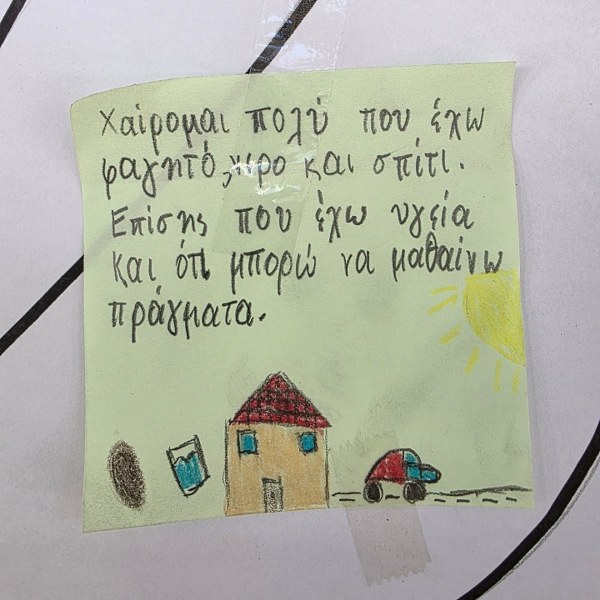 Χαίρομαι πολύ που έχω
φαγητό, νερο και σπίτι.
Επίσης που έχω υγεία
και ότι μπορώ να μαθαίνω
πράγματα.